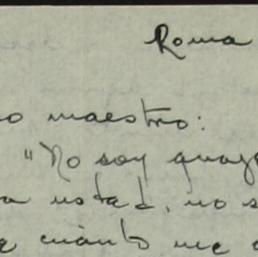 Roma
o maestro:
"No soy
a usted, no s
e cuánto me a